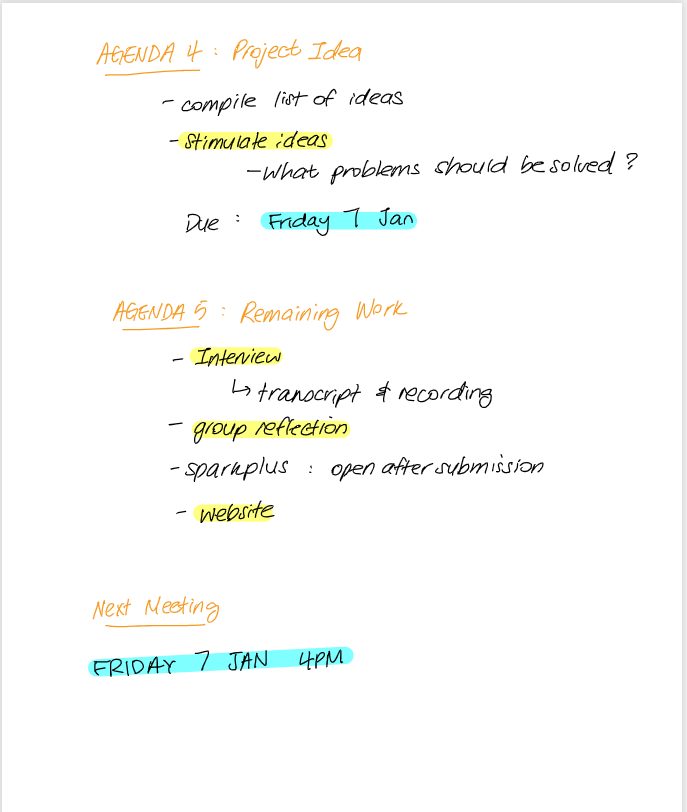 AGENDA 4 : Project Idea
- compile list of ideas
- stimulate ideas
- What problems should be solved ?
Due : Friday 7 Jan
AGENDA 5 : Remaining Work
- Interview
↳ transcript & recording
- group reflection
- sparkplus : open after submission
- website
Next Meeting
FRIDAY 7 JAN 4PM